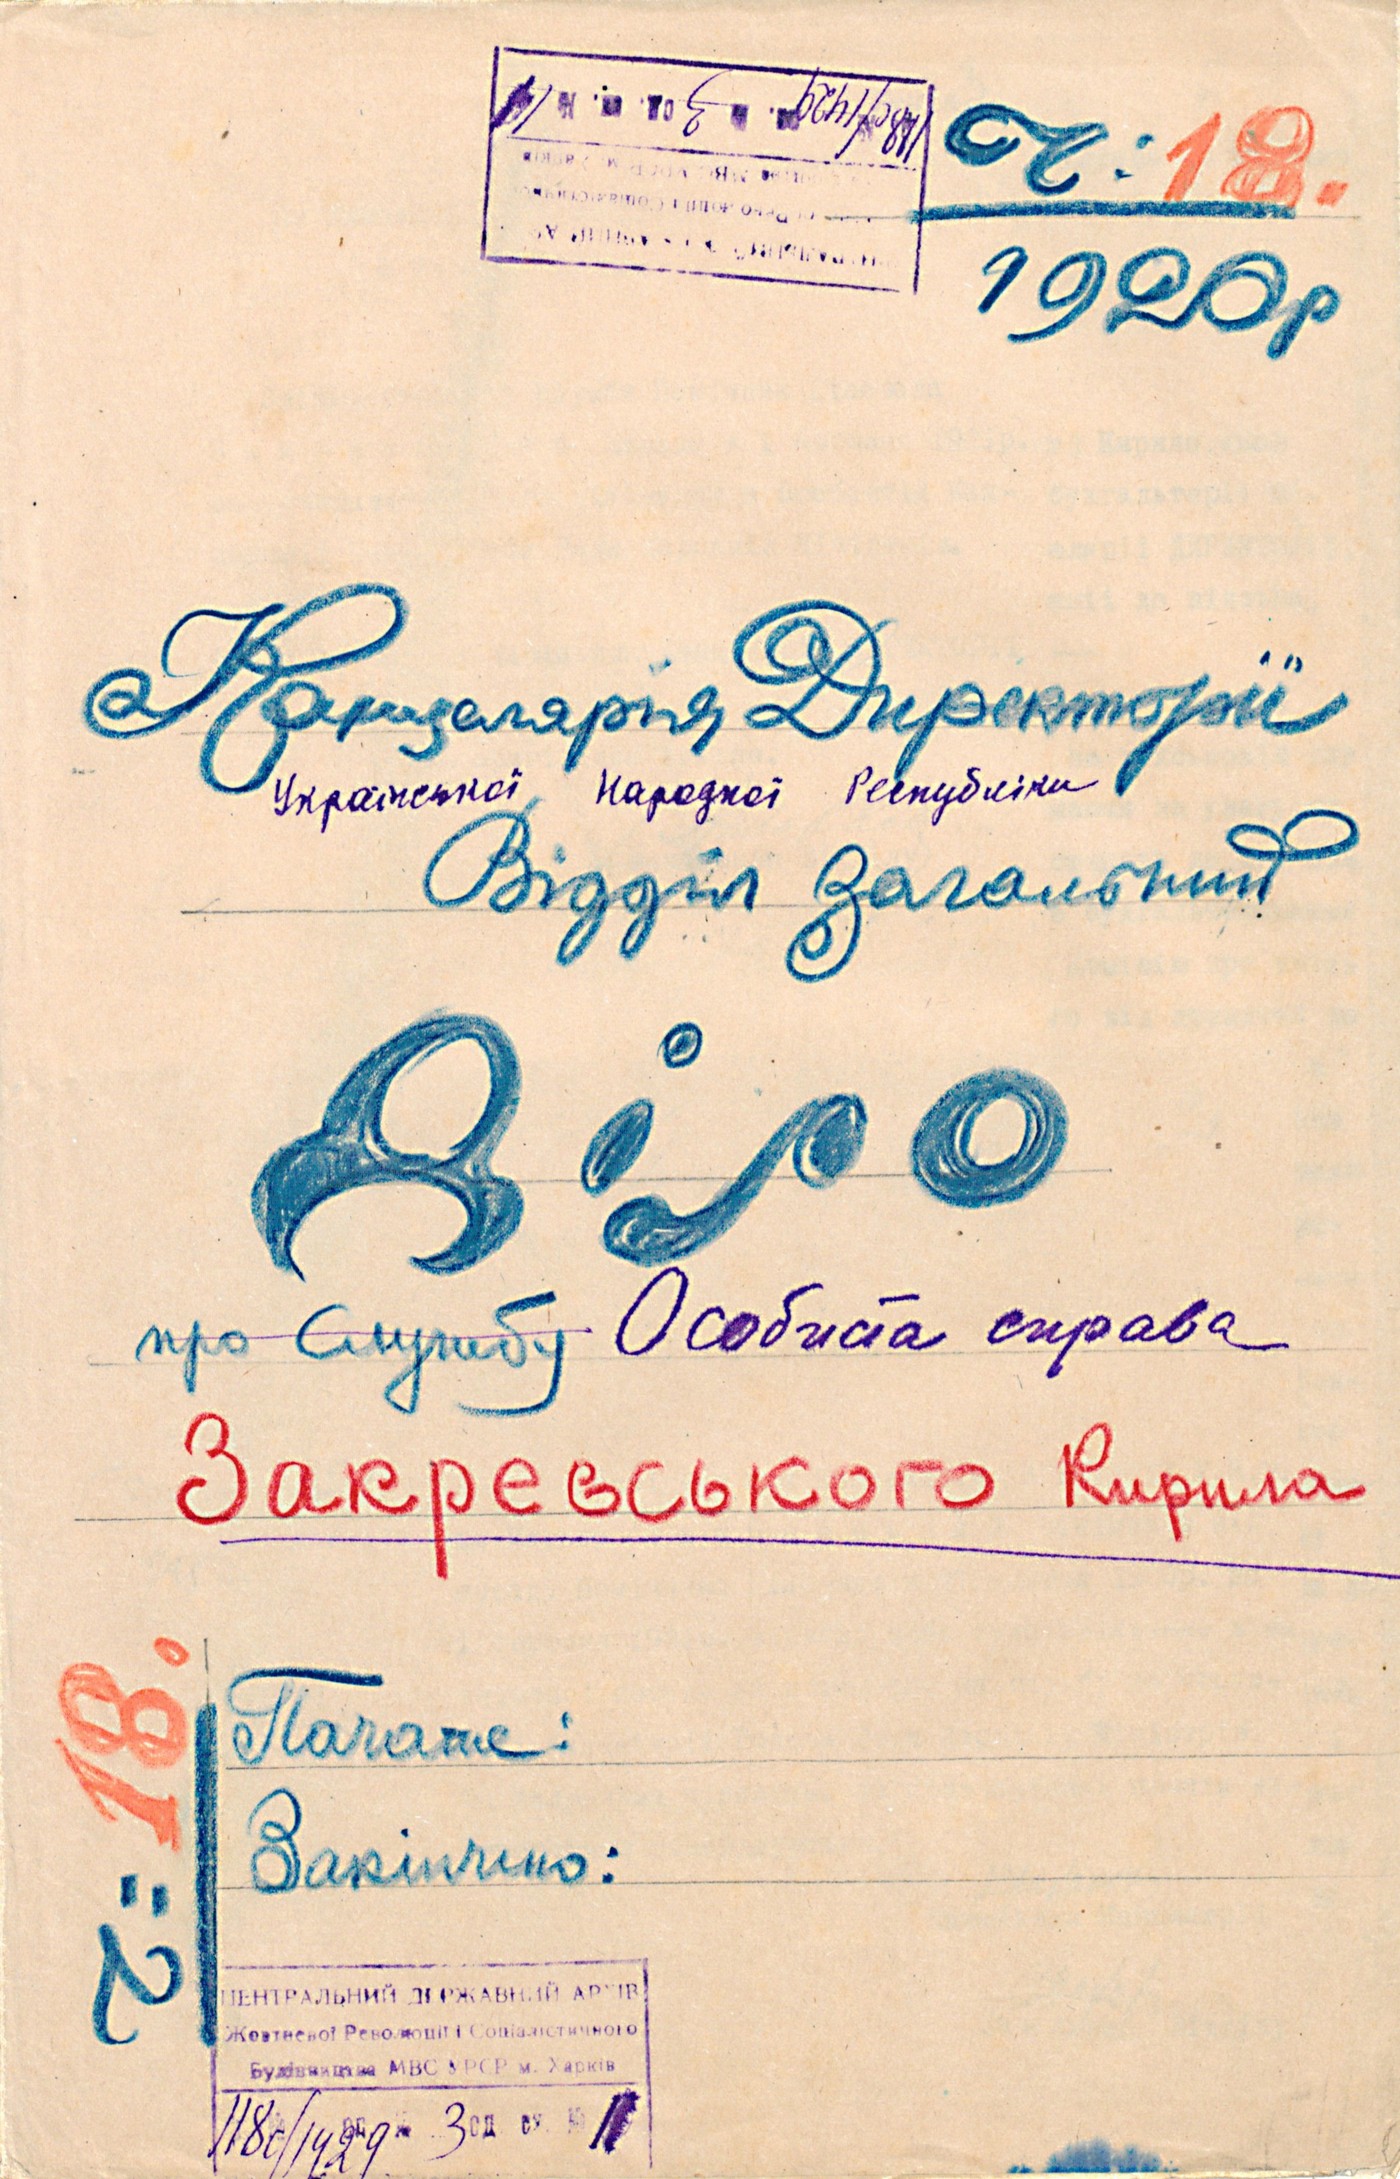 Ч: 18.
1920р
Канцелярія Директорії
Української Народної Республіки
Відділ Загальний
Діло
про Службу Особиста справа
Закревського Кирила
Ч: 18.
Почате:
Закінчено:
ЦЕНТРАЛЬНИЙ ДЕРЖАВНИЙ АРХІВ
Жовтневої Революції і Соціалістичного
Будівництва МВС УРСР м. Харків
3 од